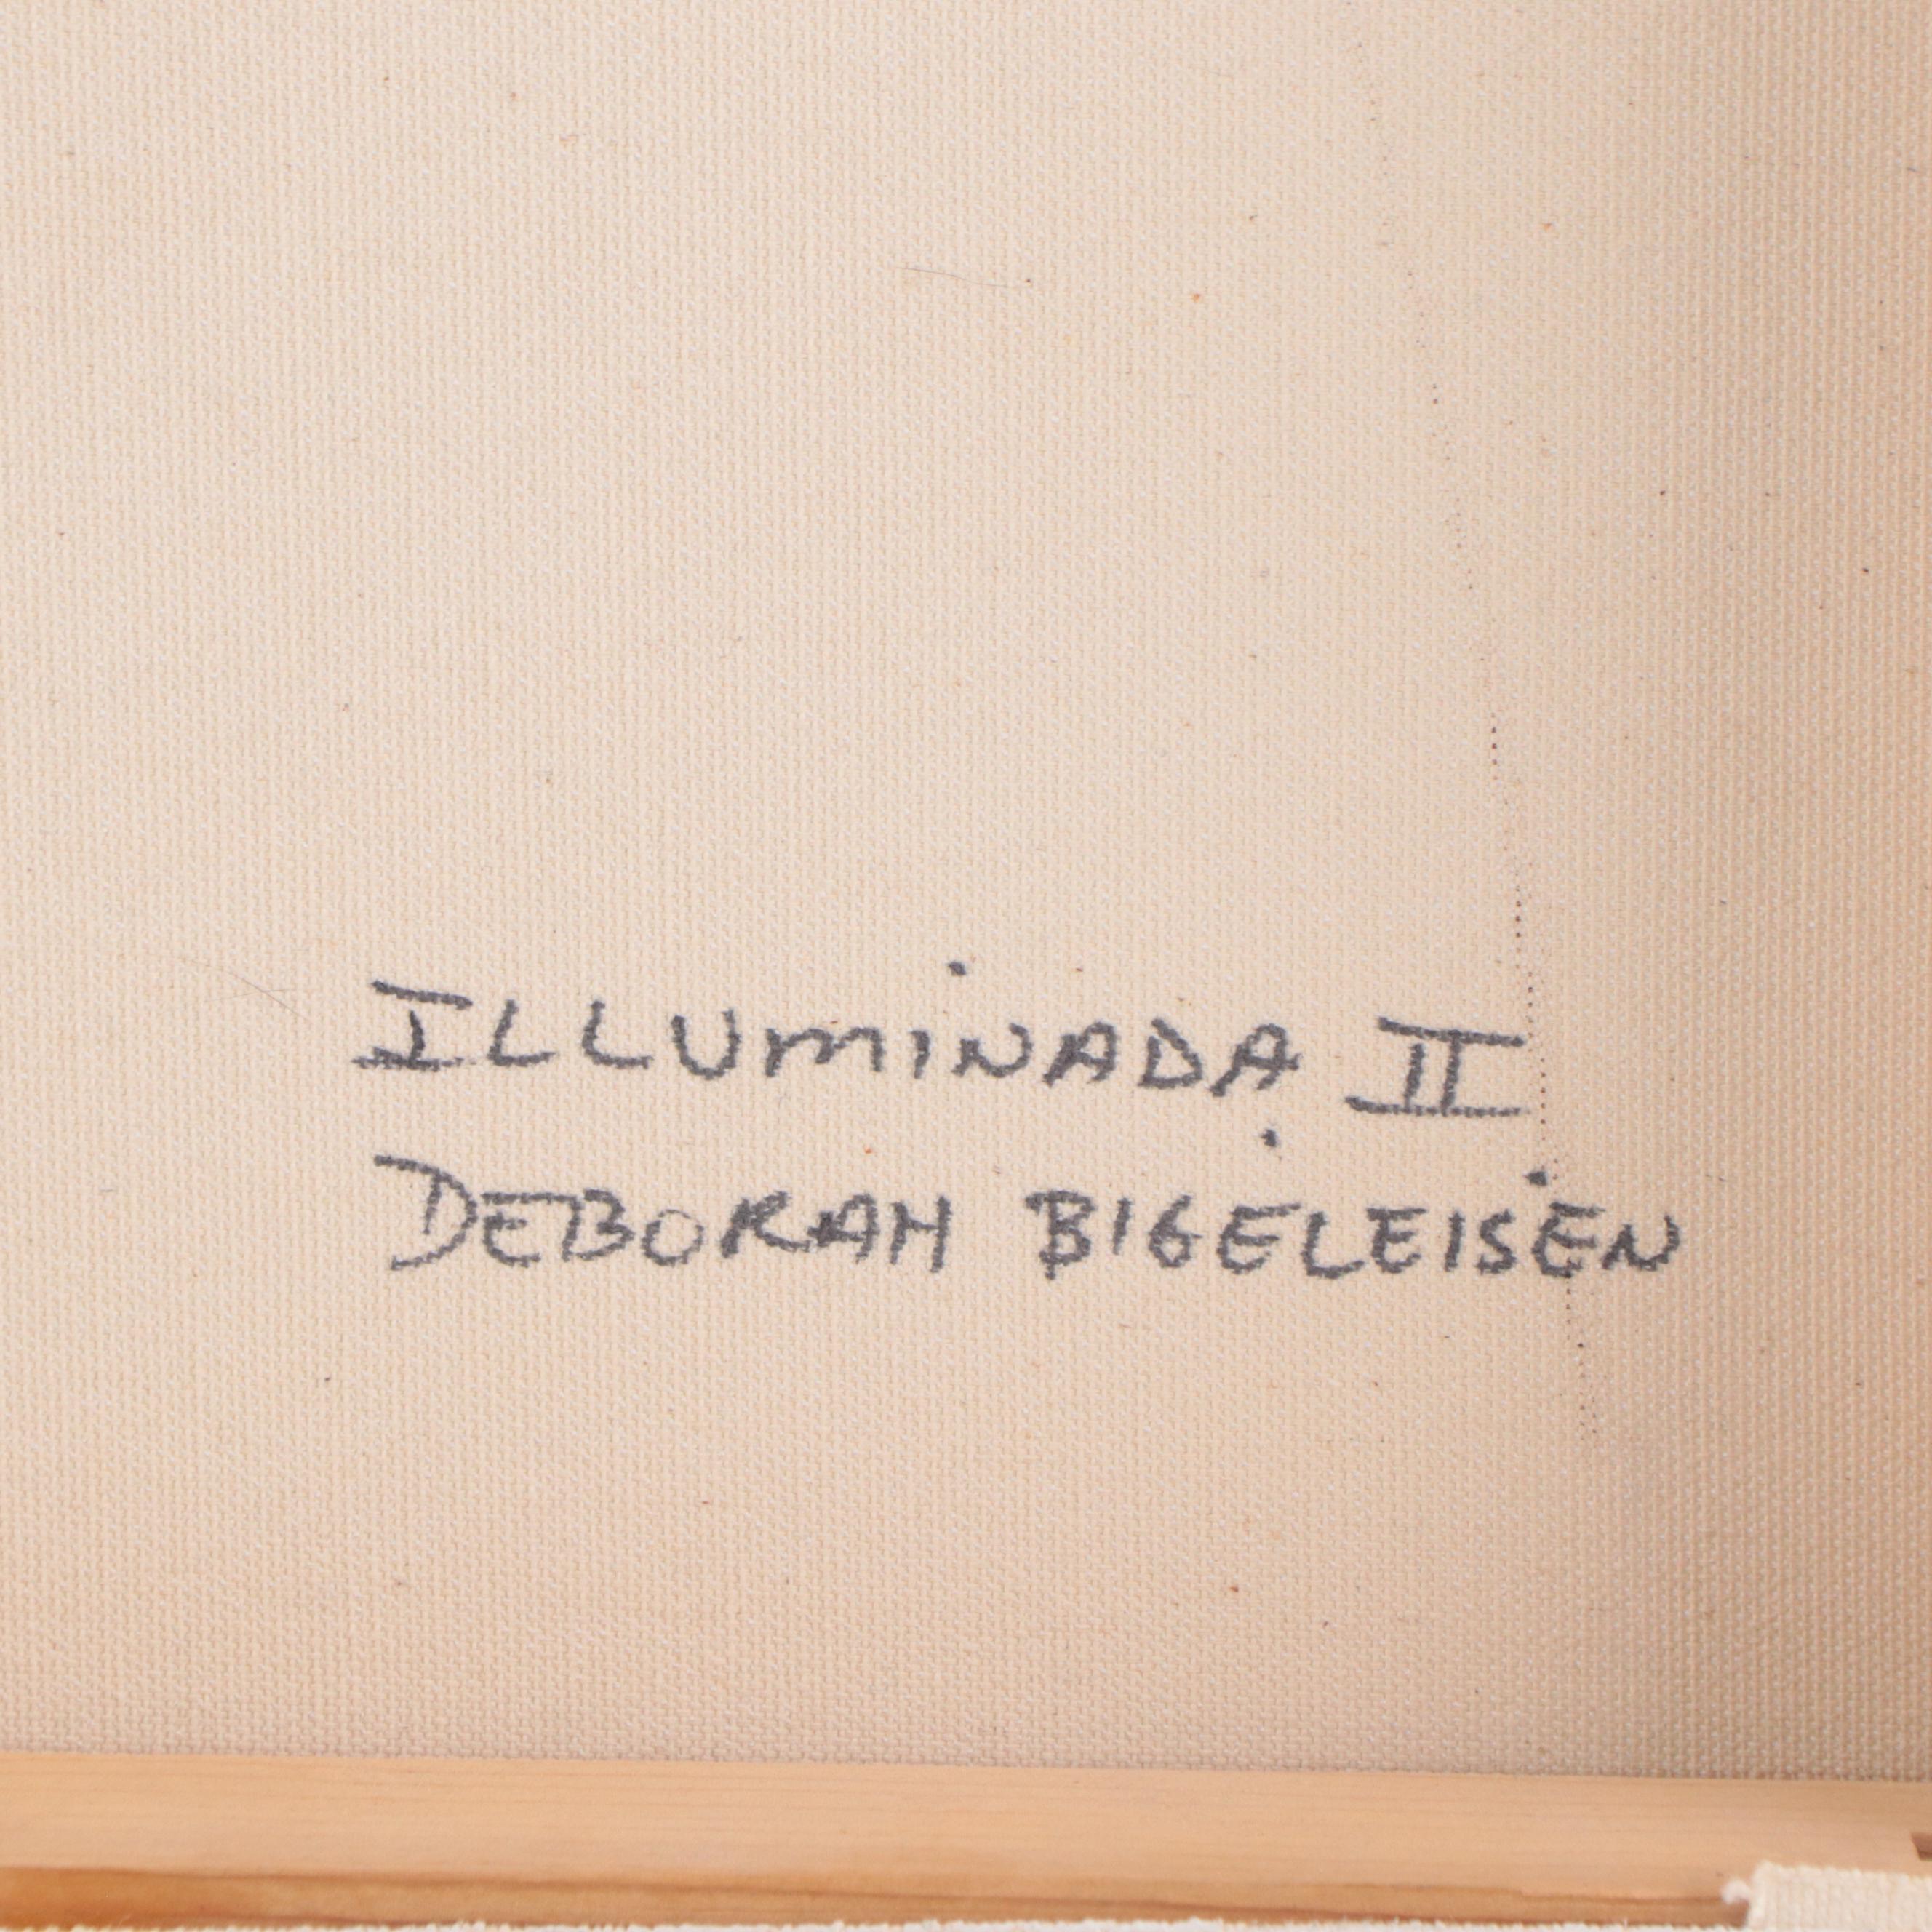 ILLUMINADA II
DEBORAH BIGELEISEN